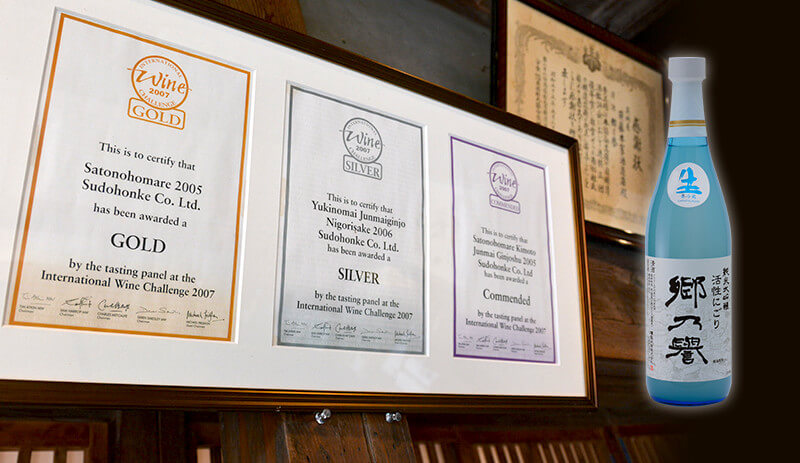 INTERNATIONAL
Wine
2007
CHALLENGE
GOLD
This is to certify that
Satonohomare 2005
Sudohonke Co. Ltd.
has been awarded a
GOLD
by the tasting panel at the
International Wine Challenge 2007
INTERNATIONAL
Wine
2007
CHALLENGE
SILVER
This is to certify that
Yukinomai Junmaiginjo
Nigorisake 2006
Sudohonke Co. Ltd.
has been awarded a
SILVER
by the tasting panel at the
International Wine Challenge 2007
INTERNATIONAL
Wine
2007
CHALLENGE
COMMENDED
This is to certify that
Satonohomare Kimoto
Junmai Ginjoshu 2005
Sudohonke Co. Ltd
has been awarded a
Commended
by the tasting panel at the
International Wine Challenge 2007
感謝状
生
純米大吟醸
活性にごり
郷乃譽